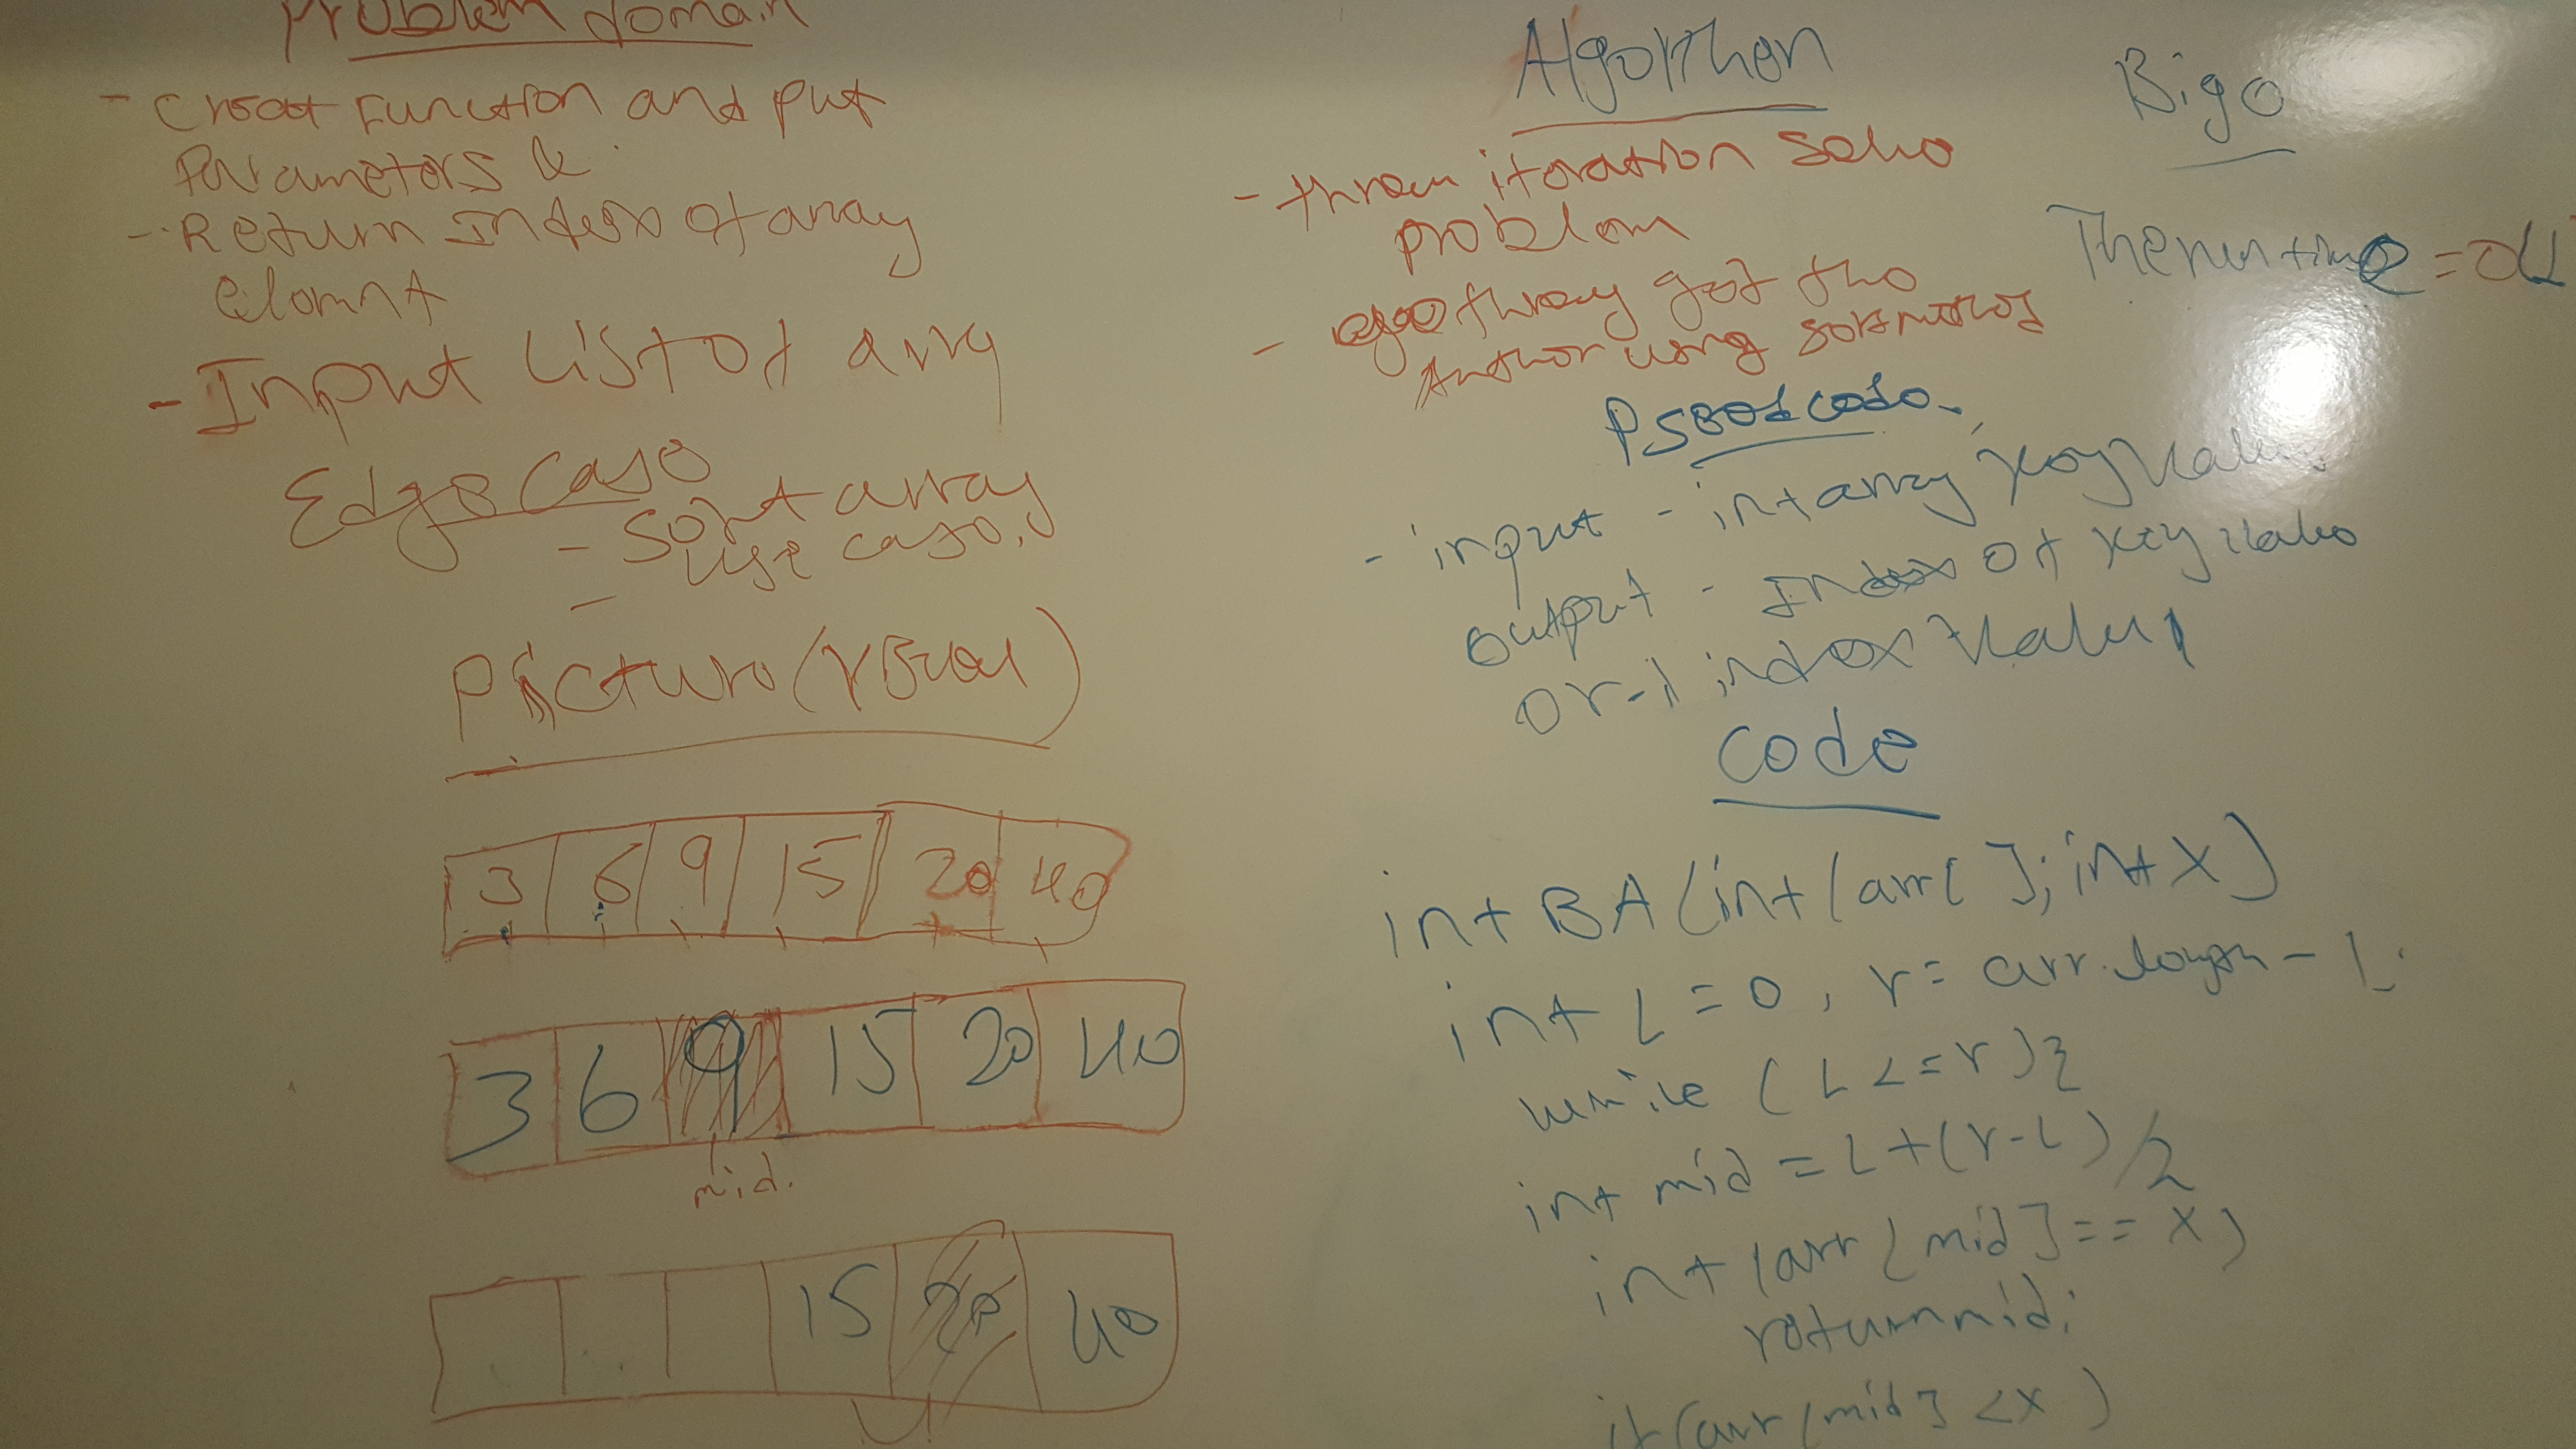 Problem domain
- Creat Function and put
Parameters &
- Return Index of array
elomnt
- Input List of arry
Edge Case
- Sort array
use case.
-
Picture (
3 6 9 15 20 40
3 6 9 15 20 40
mid.
15 20 40
Algorithem
- throw iteration solve
problem
- get the
using
code
- input - int array key value
output - Index of key value
or -1 index value
Code
int BA(int (arr[]; int x)
int L = 0, r = arr.length - 1;
while (L <= r) {
int mid = L + (r - L) / 2
int (arr[mid] == x)
return mid;
if (arr[mid] < x)
Big o
The run time = o(